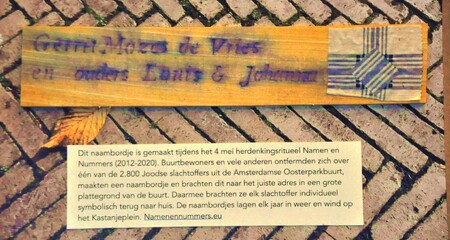 Gerrit Mozes de Vries
en ouders Louis & Johanna
Dit naambordje is gemaakt tijdens het 4 mei herdenkingsritueel Namen en
Nummers (2012-2020). Buurtbewoners en vele anderen ontfermden zich over
één van de 2.800 Joodse slachtoffers uit de Amsterdamse Oosterparkbuurt,
maakten een naambordje en brachten dit naar het juiste adres in een grote
plattegrond van de buurt. Daarmee brachten ze elk slachtoffer individueel
symbolisch terug naar huis. De naambordjes lagen elk jaar in weer en wind op
het Kastanjeplein. Namenennummers.eu